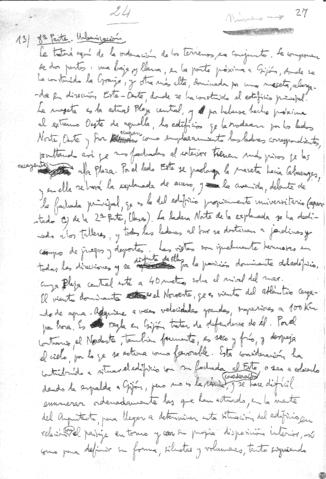 24
27
13) Xª Parte. Urbanización
Se tratará aquí de la ordenación de los terrenos, en conjunto. Se componen
de dos partes: una baja y llana, en la parte próxima a Gijón, donde se
ha contenido la Granja, y otra más alta, dominada por una meseta, alarga-
da en dirección Este-Oeste, donde se ha contenido el edificio principal.
La meseta es la actual Plaza central, y por hallarse hecha próxima
al extremo Oeste de aquella, los edificios que la rodean por los lados
Norte Oeste y Sur como emplazamiento las laderas correspondientes,
resultando así que sus fachadas al exterior tienen más pisos que las
a la Plaza. Por el lado Este se prolonga la meseta hacia Cabueñes,
y en ella se sitúa la explanada de acceso, y la avenida, delante de
la fachada principal, que es la del edificio propiamente universitario (apar-
tado c) de la 2ª Parte, Obras). La ladera Norte de la explanada se ha dedi-
cado a los Talleres, y todas las laderas al Sur se destinan a jardines y
campos de juegos y deportes. Las vistas son igualmente hermosas en
todas las direcciones y se disfruta de ellas por la posición dominante del edificio,
cuya Plaza central está a 40 metros sobre el nivel del mar.
El viento dominante es el Noroeste, que es viento del atlántico carga-
do de agua. Adquiere a veces velocidades grandes, superiores a 100 Km
por hora. Es regla en Gijón tratar de defenderse de él. Por el
contrario, el Nordeste, también frecuente, es seco y frío, y despeja
el cielo, por lo que se estima como favorable. Esta consideración ha
contribuido a situar el edificio con su fachada al Este, o sea
dando la espalda a Gijón, pero no es la única, y se hace difícil
enumerar ordenadamente las que han actuado, en la mente
del Arquitecto, para llegar a determinar esta situación del edificio en
relación al paisaje en torno y con su propia disposición interior, así
como para definir su forma, siluetas y volúmenes, tanto siguiendo